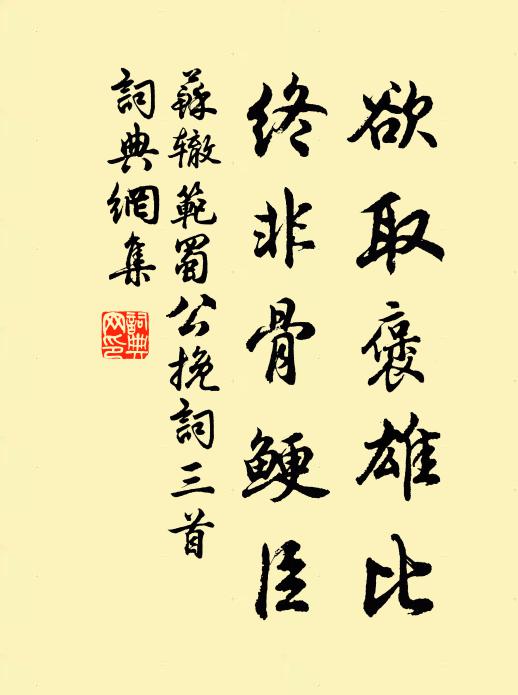 欲取褒雄比
終非骨鯁臣
蘇辙範蜀公挽詞三首
詞典網集
詞典
网印